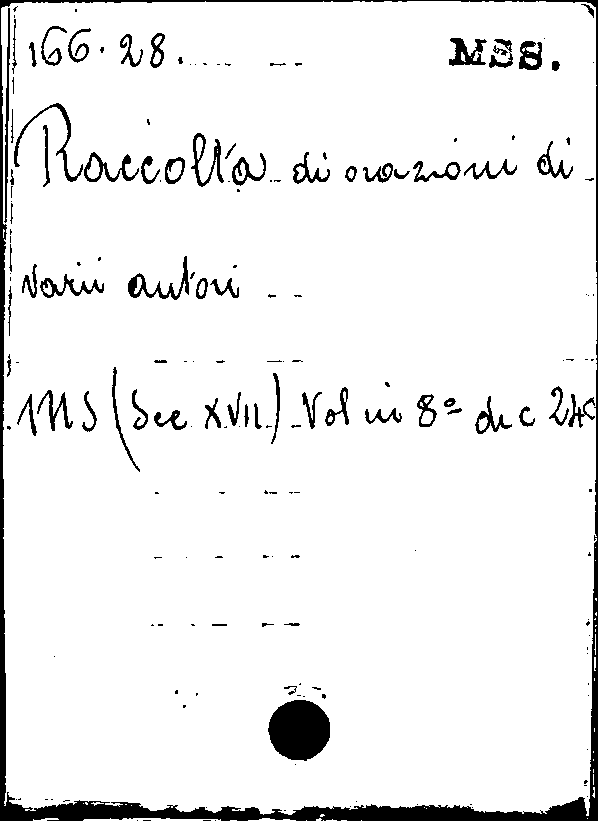 166.28. MSS.
Raccolta di orazioni di
varii autori
MS (Sec XVII) Vol in 8º di c 240